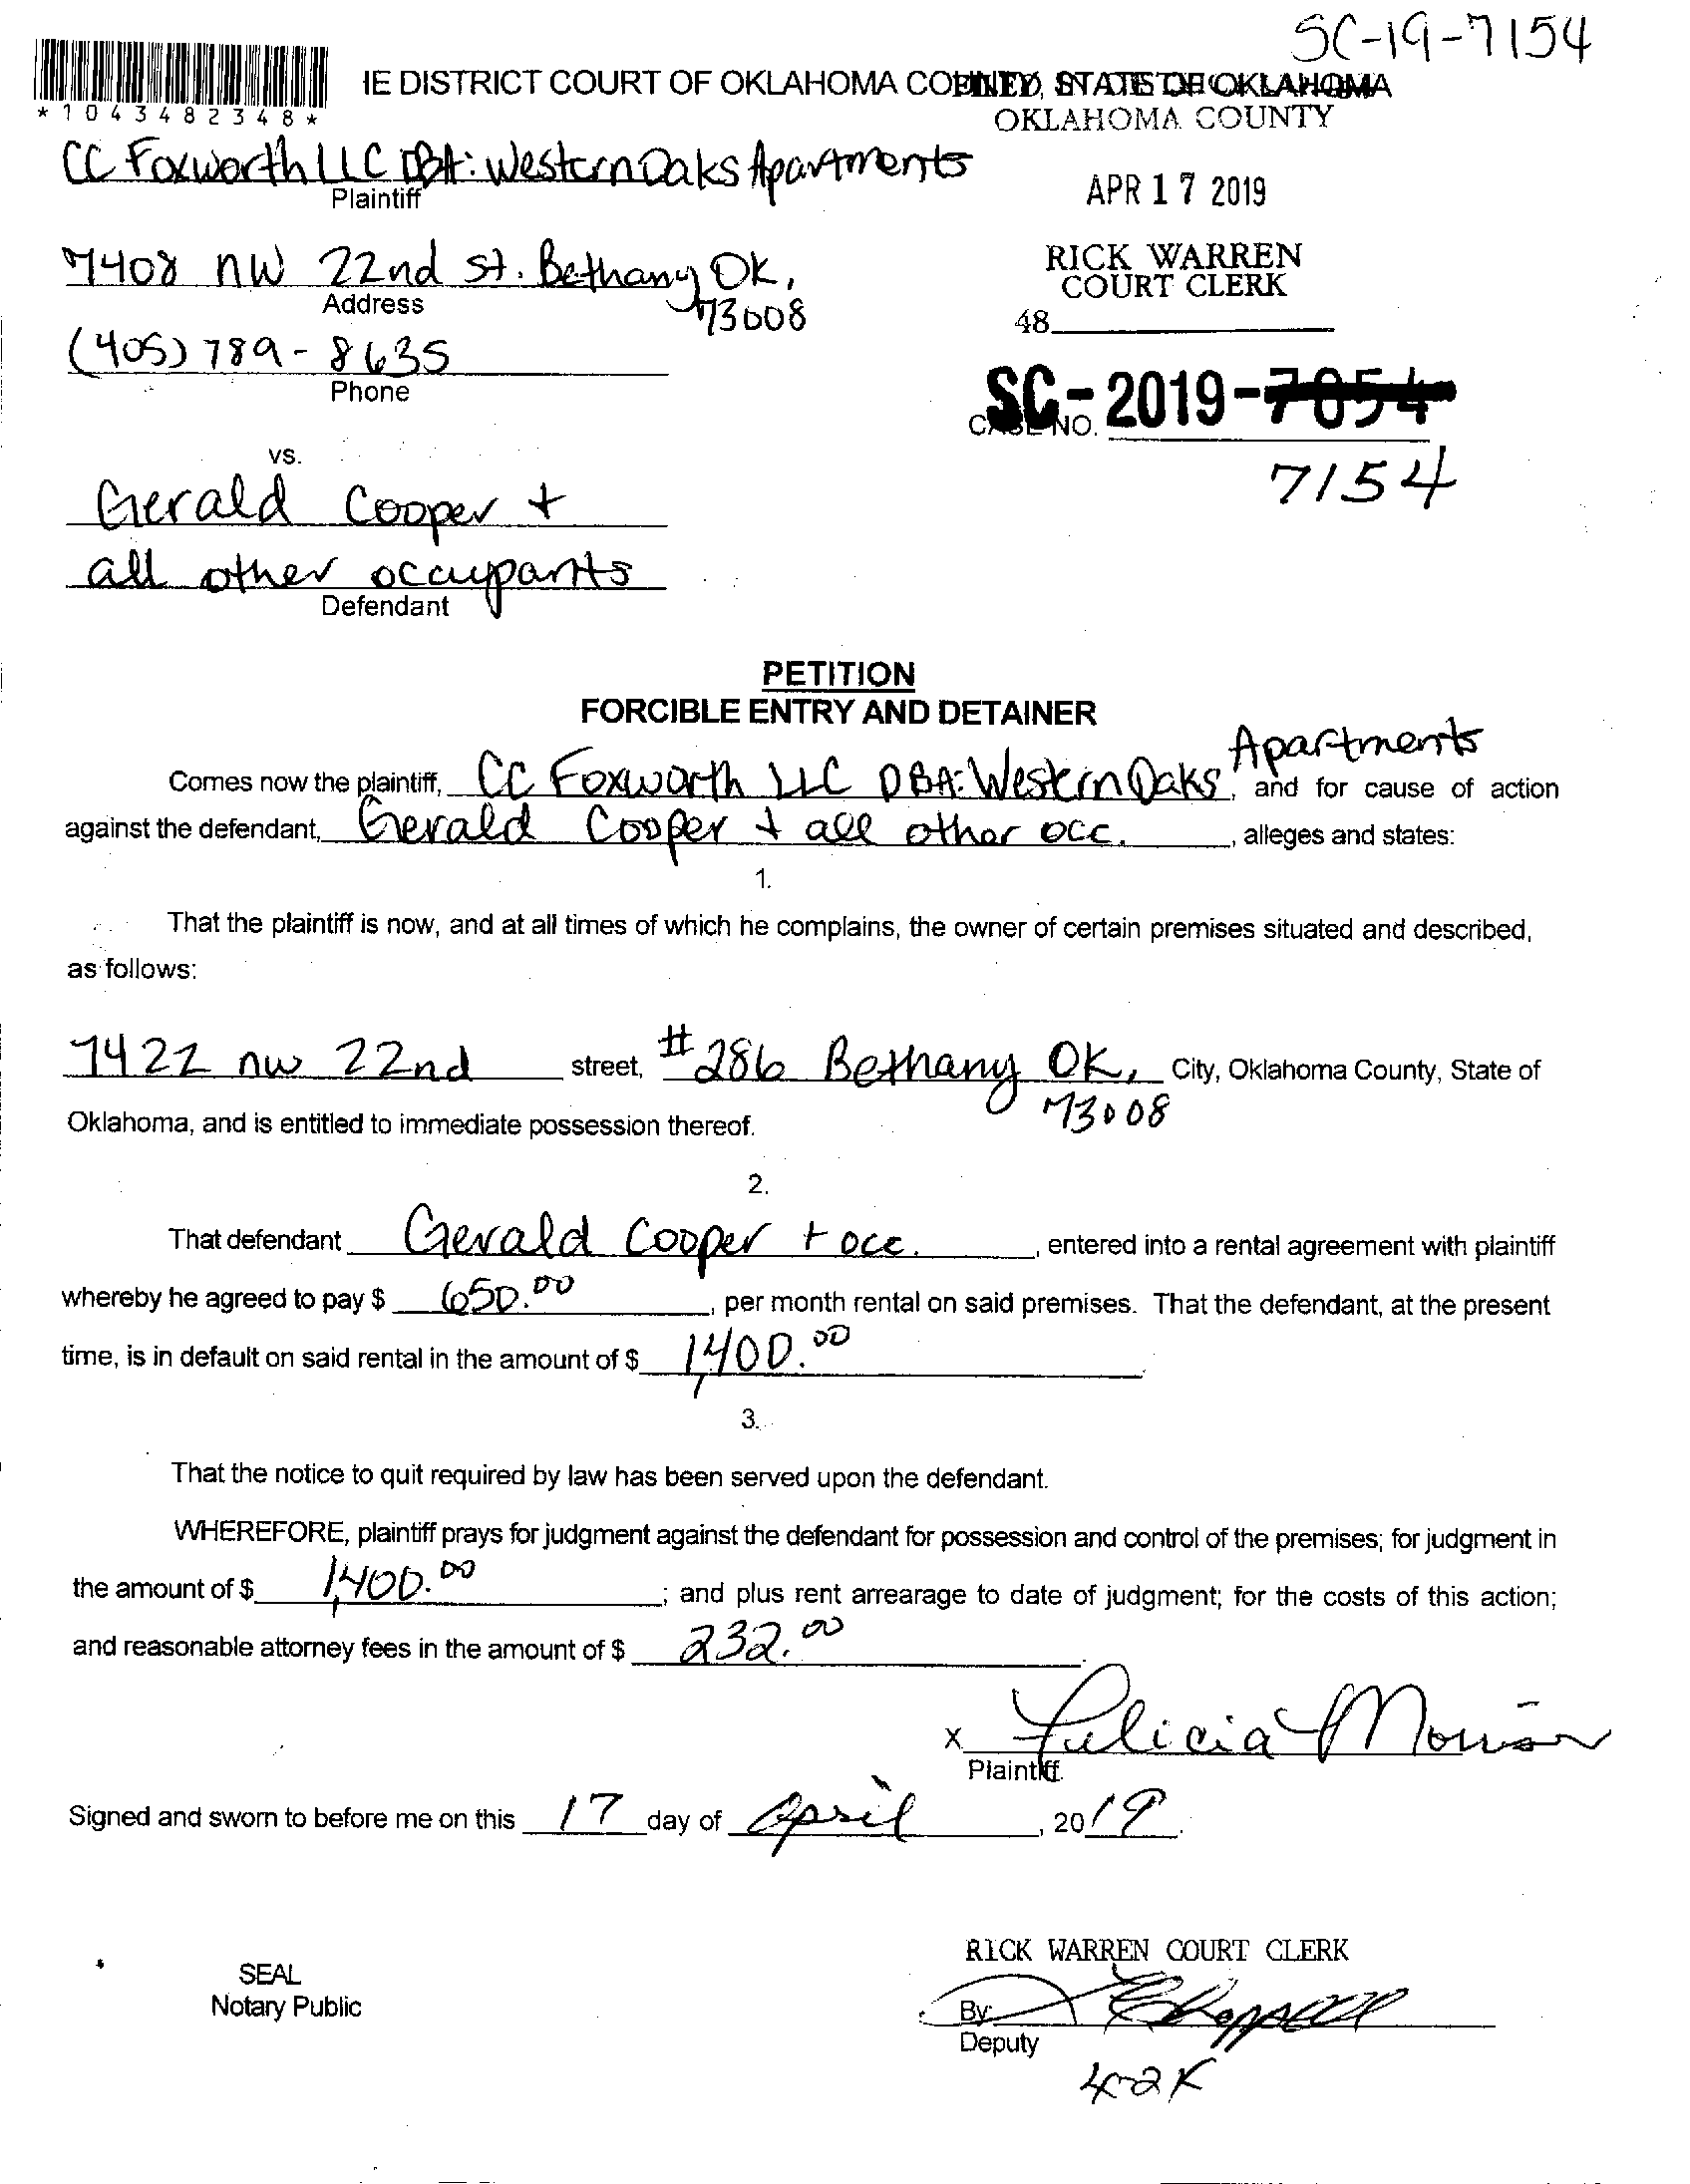 SC-19-7154
IE DISTRICT COURT OF OKLAHOMA COUNTY, STATE OF OKLAHOMA
OKLAHOMA COUNTY
*1043482348*
CC Foxworth LLC DBA: Western Oaks Apartments
Plaintiff
APR 17 2019
7408 NW 22nd st. Bethany OK,
73008
Address
RICK WARREN
COURT CLERK
48
(405) 789-8635
Phone
SC-2019-7054
CASE NO.
7154
vs.
Gerald Cooper +
all other occupants
Defendant
PETITION
FORCIBLE ENTRY AND DETAINER
Apartments
Comes now the plaintiff, CC Foxworth LLC DBA: Western Oaks, and for cause of action
against the defendant, Gerald Cooper + all other occ., alleges and states:
1.
That the plaintiff is now, and at all times of which he complains, the owner of certain premises situated and described,
as follows:
7422 nw 22nd street, #286 Bethany OK, City, Oklahoma County, State of
73008
Oklahoma, and is entitled to immediate possession thereof.
2.
That defendant Gerald Cooper + occ., entered into a rental agreement with plaintiff
whereby he agreed to pay $ 650.00, per month rental on said premises. That the defendant, at the present
time, is in default on said rental in the amount of $ 1,400.00.
3.
That the notice to quit required by law has been served upon the defendant.
WHEREFORE, plaintiff prays for judgment against the defendant for possession and control of the premises; for judgment in
the amount of $ 1,400.00; and plus rent arrearage to date of judgment; for the costs of this action;
and reasonable attorney fees in the amount of $ 232.00.
x Felicia
Plaintiff.
Signed and sworn to before me on this 17 day of April, 2019.
RICK WARREN COURT CLERK
SEAL
Notary Public
By:
Deputy